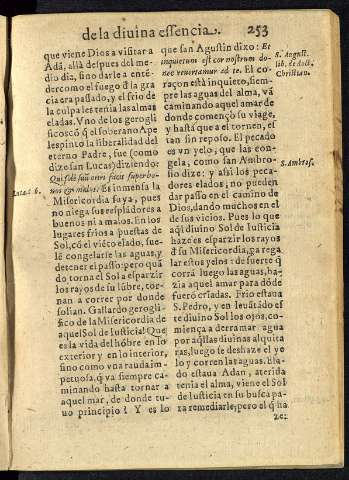 de la diuina essencia.
253
que viene Dios a visitar a
Adã, allà despues del me-
dio dia, sino darle a enté-
der como el fuego d̃ la gra
cia era passado, y el frio de
la culpa les tenia las almas
eladas. Vno de los gerogli
ficos cõ q̃ el soberano Ape
les pinto la liberalidad del
eterno Padre, fue (como
dize san Lucas) diziendo:
Qui solẽ suũ oriri facit super bo-
nos & malos.
Lucæ 6.
Es inmensa la
Misericordia suya, pues
no niega sus resplãdores a
buenos ni a malos. En los
lugares frios a puestas de
Sol, cõ el viẽto elado, sue-
lẽ congelarse las aguas, y
detener el passo: pero quã
do torna el Sol a esparzir
los rayos de su lũbre, tor-
nan a correr por donde
solian. Gallardo gerogli-
fico de la Misericordia de
aquel Sol de Iusticia! Que
es la vida del hõbre en lo
exterior y en lo interior,
sino como vna rauda im-
petuosa, q̃ va siempre ca-
minando hasta tornar a
aquel mar, de donde tu-
uo principio? Y es lo
que san Agustin dixo: Et
inquietum est cor nostrum do-
nec reuertamur ad te.
S. August.
lib. de doct.
Christian.
El co-
raçon està inquieto, siem-
pre las aguas del alma, vã
caminando aquel amar de
donde començo su viage,
y hasta que a el tornen, es
tan sin reposo. El pecado
es vn yelo, que las con-
gela, como san Ambro-
sio dize: y assi los peca-
S. Ambros.
dores elados, no pueden
dar passo en el camino de
Dios, dando muchos en el
de sus vicios. Pues lo que
aq̃l diuino Sol de Iusticia
haze es esparzir los rayos
d̃ su Misericordia, pa rega
lar estos yelos: de suerte q̃
corrã luego las aguas, ha-
zia aquel amar para dõde
fuerõ criadas. Frio estaua
S. Pedro, y en leuãtãdo es
te diuino Sol los ojos, co-
miença a derramar agua
por aq̃llas diuinas alquita
ras, luego se deshaze el ye
lo y corren las aguas. Ela-
do estaua Adan, aterida
tenia el alma, viene el Sol
de Iusticia en su busca pa-
ra remediarle, pero el q̃ ha
ze: